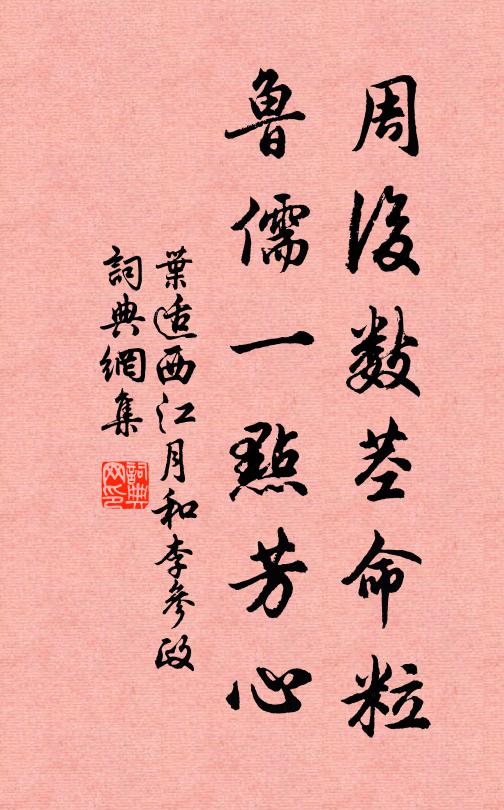 周後數莖命粒
魯儒一點芳心
葉適西江月和李參政
詞典網集
詞典
网印